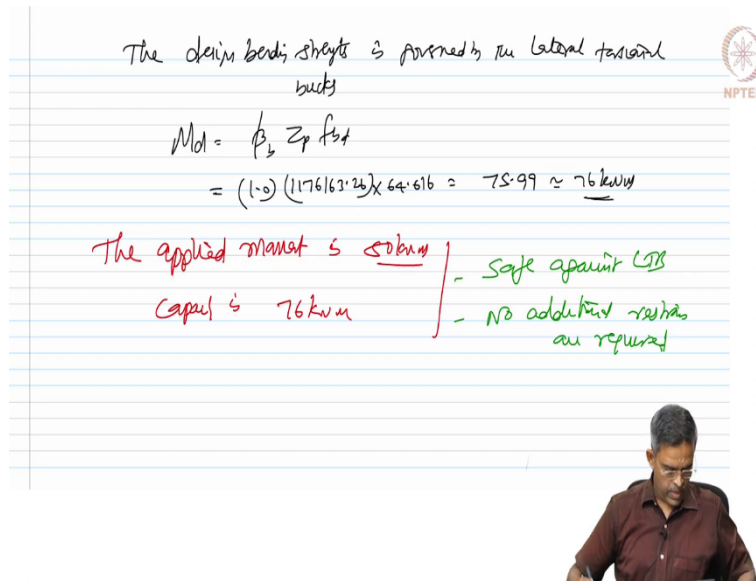 The design bending strength is governed by the lateral torsional
buckling
NPTE
Md = βb Zp fbd
= (1.0) (1176163.26) × 64.616 = 75.99 ≃ 76 kNm
The applied moment is 50 kNm
Capacity is 76 kNm
- Safe against LTB
- No additional restrains
are required